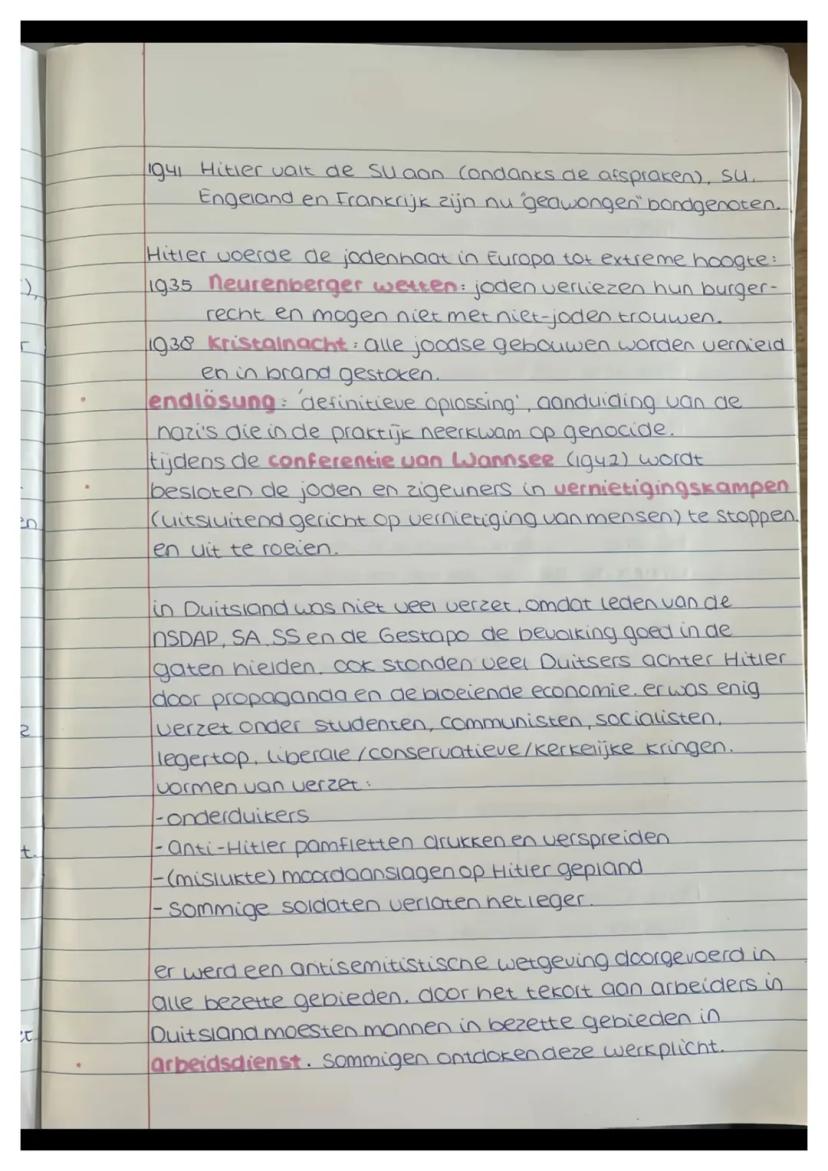 1941 Hitler valt de SU aan (ondanks de afspraken), SU,
Engeland en Frankrijk zijn nu "gedwongen" bondgenoten.
Hitler voerde de jodenhaat in Europa tot extreme hoogte:
1935 Neurenberger wetten: joden verliezen hun burger-
recht en mogen niet met niet-joden trouwen.
1938 kristalnacht: alle joodse gebouwen worden vernield
en in brand gestoken.
endlösung: 'definitieve oplossing', aanduiding van de
nazi's die in de praktijk neerkwam op genocide.
tijdens de conferentie van Wannsee (1942) wordt
besloten de joden en zigeuners in vernietigingskampen
(uitsluitend gericht op vernietiging van mensen) te stoppen
en uit te roeien.
in Duitsland was niet veel verzet, omdat leden van de
NSDAP, SA, SS en de Gestapo de bevolking goed in de
gaten hielden. ook stonden veel Duitsers achter Hitler
door propaganda en de bloeiende economie. er was enig
verzet onder studenten, communisten, socialisten,
legertop, liberale/conservatieve/kerkelijke kringen.
vormen van verzet:
-onderduikers
-anti-Hitler pamfletten drukken en verspreiden
-(mislukte) moordaanslagen op Hitler gepland
-sommige soldaten verlaten het leger.
er werd een antisemitistische wetgeving doorgevoerd in
alle bezette gebieden. door het tekort aan arbeiders in
Duitsland moesten mannen in bezette gebieden in
arbeidsdienst. Sommigen ontdoken deze werkplicht.